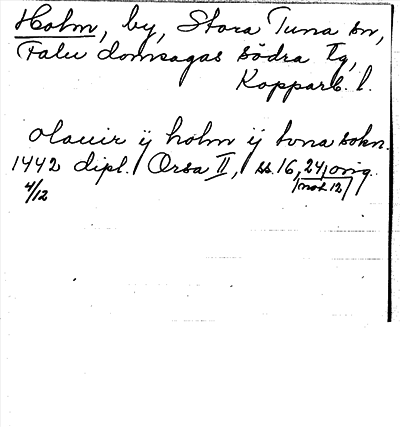 Holm, by, Stora Tuna sn,
Falu domsagas södra tg,
Kopparb. l.
olauir ij holm ij tuna sokn.
1442 dipl. Orsa II, ss. 16, 24, orig.
4/12 (not 12)